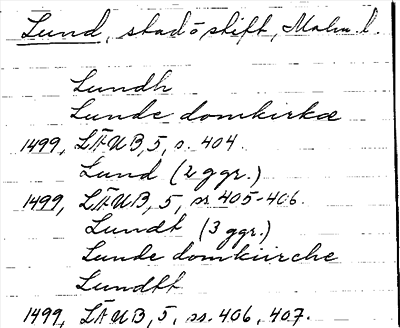 Lund, stad o stift, Malm. l.
Lundh
Lunde domkirkæ
1499, LÄUB, 5, s. 404.
Lund (2 ggr.)
1499, LÄUB, 5, ss 405-406.
Lundt (3 ggr.)
Lunde domkiirche
Lundtt
1499, LÄUB, 5, ss. 406, 407.